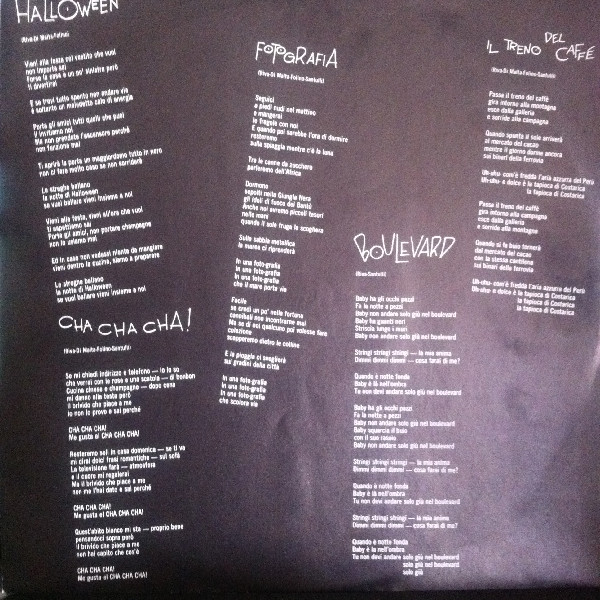 HALLOWEEN
(Riva-Di Maita-Folino)
Vieni alla festa col vestito che vuoi
non importa sai
Forse la casa è un po' sinistra però
ti divertirai
E se trovi tutto spento non andare via
è soltanto un maledetto calo di energia
Porta gli amici tutti quelli che puoi
li invitiamo noi
Ma non prendete l'ascensore perché
non funziona mai
Ti aprirà la porta un maggiordomo tutto in nero
non ci fare molto caso se non sorriderà
Le streghe ballano
la notte di Halloween
se vuoi ballare vieni insieme a noi
Vieni alla festa, vieni all'ora che vuoi
ti aspettiamo sai
Porta gli amici, non portare champagne
non lo usiamo mai
Ed in caso non vedessi niente da mangiare
vieni dentro la cucina, siamo a preparare
Le streghe ballano
la notte di Halloween
se vuoi ballare vieni insieme a noi
CHA CHA CHA!
(Riva-Di Maita-Folino-Santulli)
Se mi chiedi indirizzo e telefono — io lo so
che verrai con le rose e una scatola — di bonbon
Cucina cinese e champagne — dopo cena
mi danno alla testa però
il brivido che piace a me
io non lo provo e sai perché
CHA CHA CHA!
Me gusta el CHA CHA CHA!
Resteremo soli in casa domenica — se ti va
mi dirai dolci frasi romantiche — sul sofà
La televisione farà — atmosfera
e il cuore mi regalerai
Ma il brivido che piace a me
non me l'hai dato e sai perché
CHA CHA CHA!
Me gusta el CHA CHA CHA!
Quest'abito bianco mi sta — proprio bene
pensandoci sopra però
il brivido che piace a me
non hai capito che cos'è
CHA CHA CHA!
Me gusta el CHA CHA CHA!
FOTOGRAFIA
(Riva-Di Maita-Folino-Santulli)
Seguici
a piedi nudi nel mattino
e mangerai
le fragole con noi
E quando poi sarebbe l'ora di dormire
resteremo
sulla spiaggia mentre c'è la luna
Tra le canne da zucchero
parleremo dell'Africa
Dormono
sepolti nella Giungla Nera
gli idoli di fuoco dei
Anche noi avremo piccoli tesori
nelle mani
quando il sole fruga le scogliere
Sulla sabbia metallica
la marea ci riprenderà
In una foto-grafia
In una foto-grafia
In una foto-grafia
che il mare porta via
Facile
se credi un po' nella fortuna
cannibali non incontrarne mai
Ma se di noi qualcuno poi volesse fare
colazione
scapperemo dietro le colline
E la pioggia ci sceglierà
sui gradini della città
In una foto-grafia
In una foto-grafia
In una foto-grafia
che scolora via
IL TRENO DEL CAFFÈ
(Riva-Di Maita-Folino-Santulli)
Passa il treno del caffè
gira intorno alla montagna
esce dalla galleria
e sorride alla campagna
Quando spunta il sole arriverà
al mercato del cacao
mentre il giorno dorme ancora
sui binari della ferrovia
Uh-uhu- com'è fredda l'aria azzurra del Perù
Uh-uhu- e dolce è la tapioca di Costarica
la tapioca di Costarica
Passa il treno del caffè
gira intorno alla campagna
esce dalla galleria
e sorride alla montagna
Quando si fa buio tornerà
dal mercato del cacao
con la stessa cantilena
sui binari della ferrovia
Uh-uhu- com'è fredda l'aria azzurra del Perù
Uh-uhu- e dolce è la tapioca di Costarica
la tapioca di Costarica
la tapioca di Costarica
BOULEVARD
(Riva-Santulli)
Baby ha gli occhi pezzi
Fa la notte a pezzi
Baby non andare solo giù nel boulevard
Baby ha guanti neri
Striscia lungo i muri
Baby non andare solo giù nel boulevard
Stringi stringi stringi — la mia anima
Dimmi dimmi dimmi — cosa farai di me?
Quando è notte fonda
Baby è là nell'ombra
Tu non devi andare solo giù nel boulevard
Baby ha gli occhi pazzi
Fa la notte a pezzi
Baby non andare solo giù nel boulevard
Baby squarcia il buio
con il suo rasoio
Baby non andare solo giù nel boulevard
Stringi stringi stringi — la mia anima
Dimmi dimmi dimmi — cosa farai di me?
Quando è notte fonda
Baby è là nell'ombra
Tu non devi andare solo giù nel boulevard
Stringi stringi stringi — la mia anima
Dimmi dimmi dimmi — cosa farai di me?
Quando è notte fonda
Baby è là nell'ombra
Tu non devi andare solo giù nel boulevard
solo giù nel boulevard
solo giù